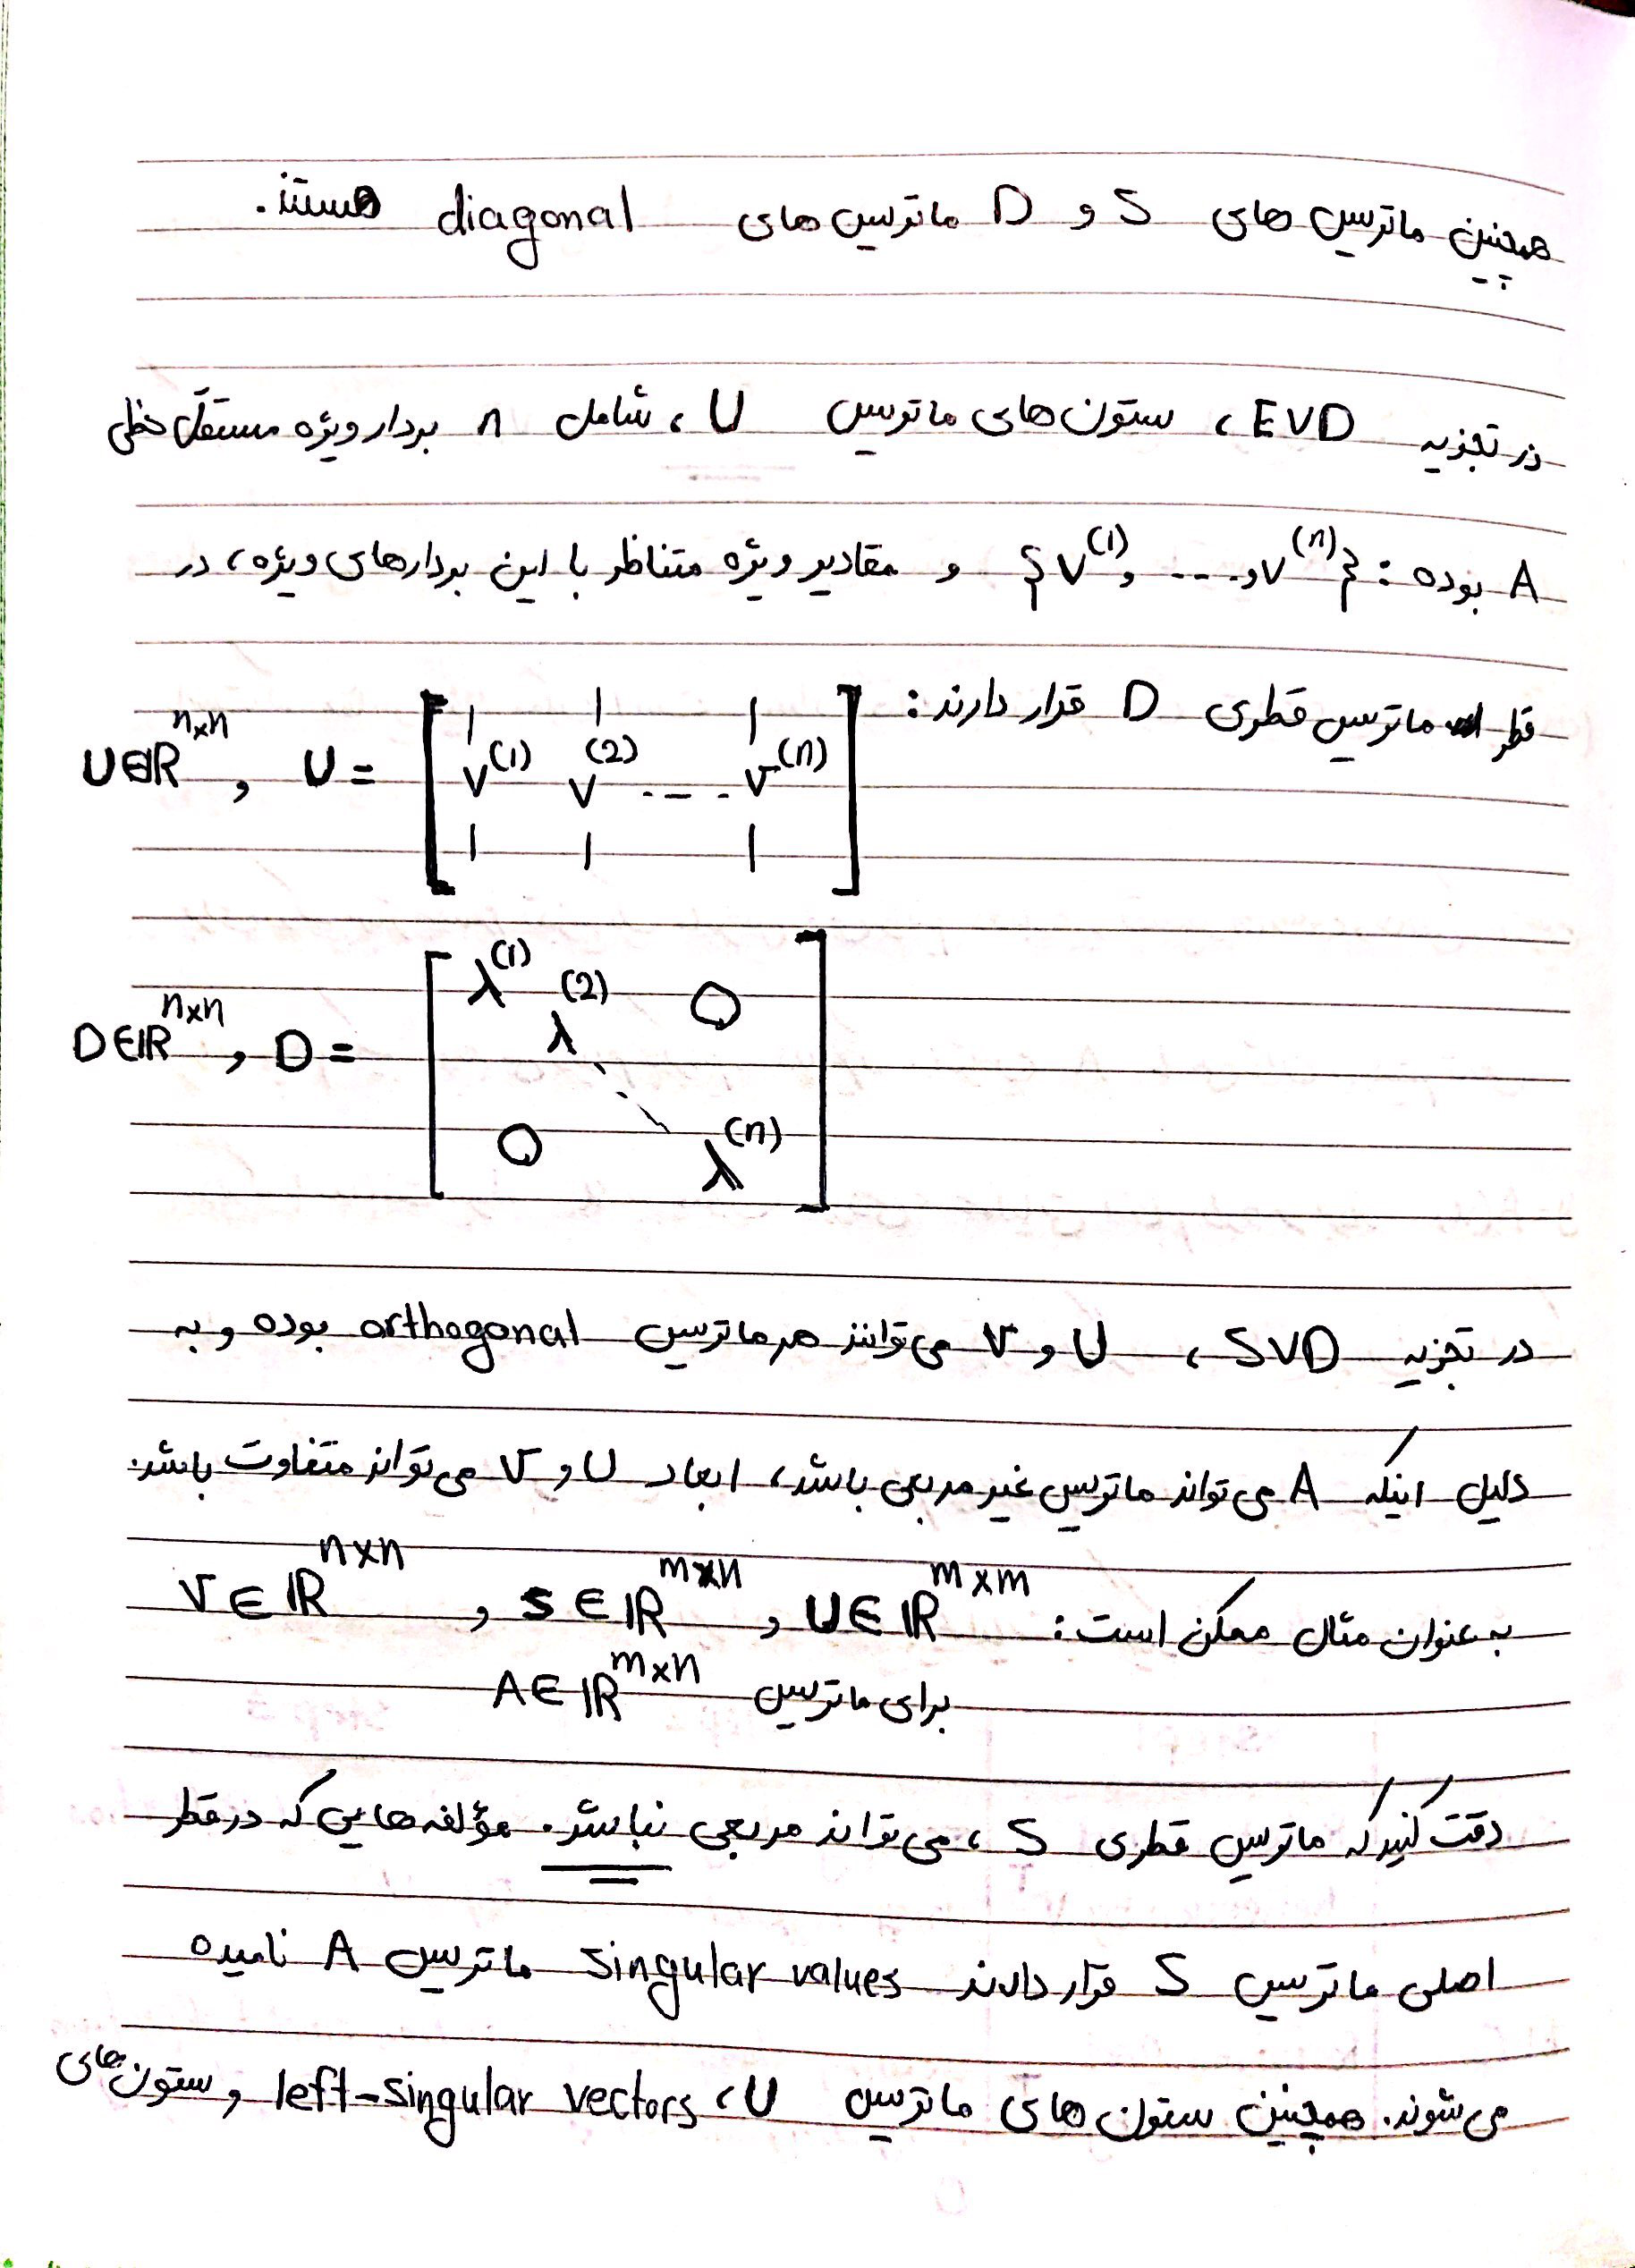 همچنین ماتریس های S و D ماتریس های diagonal هستند.
در تجزیه EVD، ستون های ماتریس U، شامل n بردار ویژه مستقل خطی
A بوده : {v^(1), ..., v^(n)} و مقادیر ویژه متناظر با این بردارهای ویژه، در
قطر ماتریس قطری D قرار دارند :
U∈ℝ^{n×n} , U = [ v^(1) v^(2) ... v^(n) ]
D∈ℝ^{n×n} , D = [ λ^(1) λ^(2) ⋱ λ^(n) ] 0 0
در تجزیه SVD، U و V می توانند هر ماتریس orthogonal بوده و به
دلیل اینکه A می تواند ماتریس غیر مربعی باشد، ابعاد U و V می تواند متفاوت باشد.
به عنوان مثال ممکن است : U∈ℝ^{m×m} , S∈ℝ^{m×n} , V∈ℝ^{n×n}
برای ماتریس A∈ℝ^{m×n}
دقت کنید که ماتریس قطری S، می تواند مربعی نباشد. مؤلفه هایی که در قطر
اصلی ماتریس S قرار دارند singular values ماتریس A نامیده
می شوند. همچنین ستون های ماتریس U، left-singular vectors و ستون های